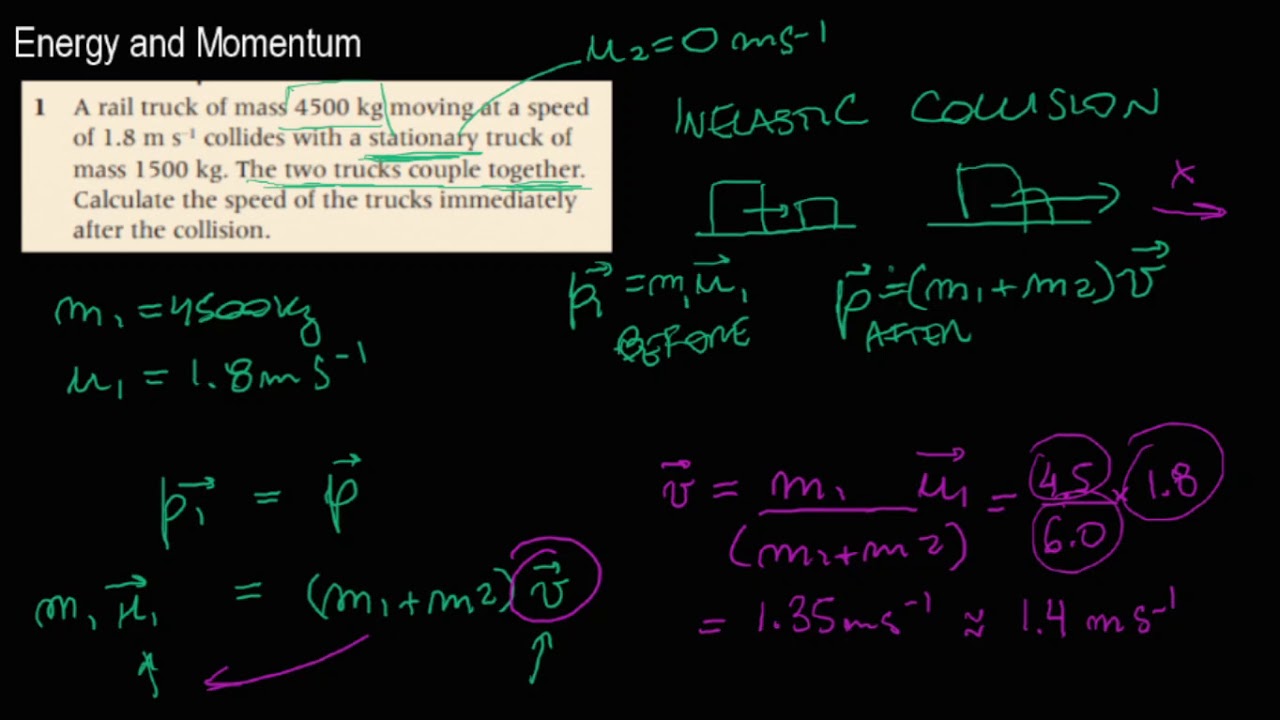 Energy and Momentum
μ₂ = 0 ms⁻¹
1 A rail truck of mass 4500 kg moving at a speed
of 1.8 m s⁻¹ collides with a stationary truck of
mass 1500 kg. The two trucks couple together.
Calculate the speed of the trucks immediately
after the collision.
INELASTIC COLLISION
x
m₁ = 4500kg
μ₁ = 1.8 m s⁻¹
p⃗₁ = m₁ μ⃗₁
BEFORE
p⃗ = (m₁ + m2) v⃗
AFTER
p⃗₁ = p⃗
m₁ μ⃗₁ = (m₁ + m2) v⃗
v⃗ = m₁ μ⃗₁ / (m₁ + m2) = 4.5 / 6.0 × 1.8
= 1.35 ms⁻¹ ≈ 1.4 ms⁻¹